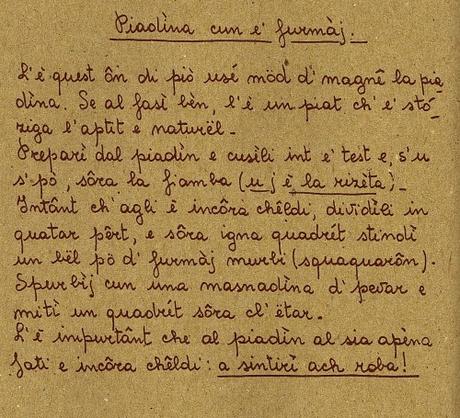 Piadìna cun e' furmàj.
L'è quest ôn di piò usé möd d' magnê la pia
dìna. Se al fasì bèn, l'è un piat ch' e' stó-
ziga l'aptit e naturël.
Preparì dal piadìn e cusìli int e' test e, s'u
s' pò, sôra la fiamba (u j è la rizëta).
Intânt ch'agli è incôra chêldi, dividìli in
quatar pêrt, e sôra igna quadrét stindì
un bël pö d' furmàj murbi (squaquarôn).
Spurbij cun una masnadìna d' pevar e
mitì un quadrét sôra cl' ëtar.
L'è impurtânt che al piadìn al sia apèna
fati e incôra chêldi: a sintirì ach roba!